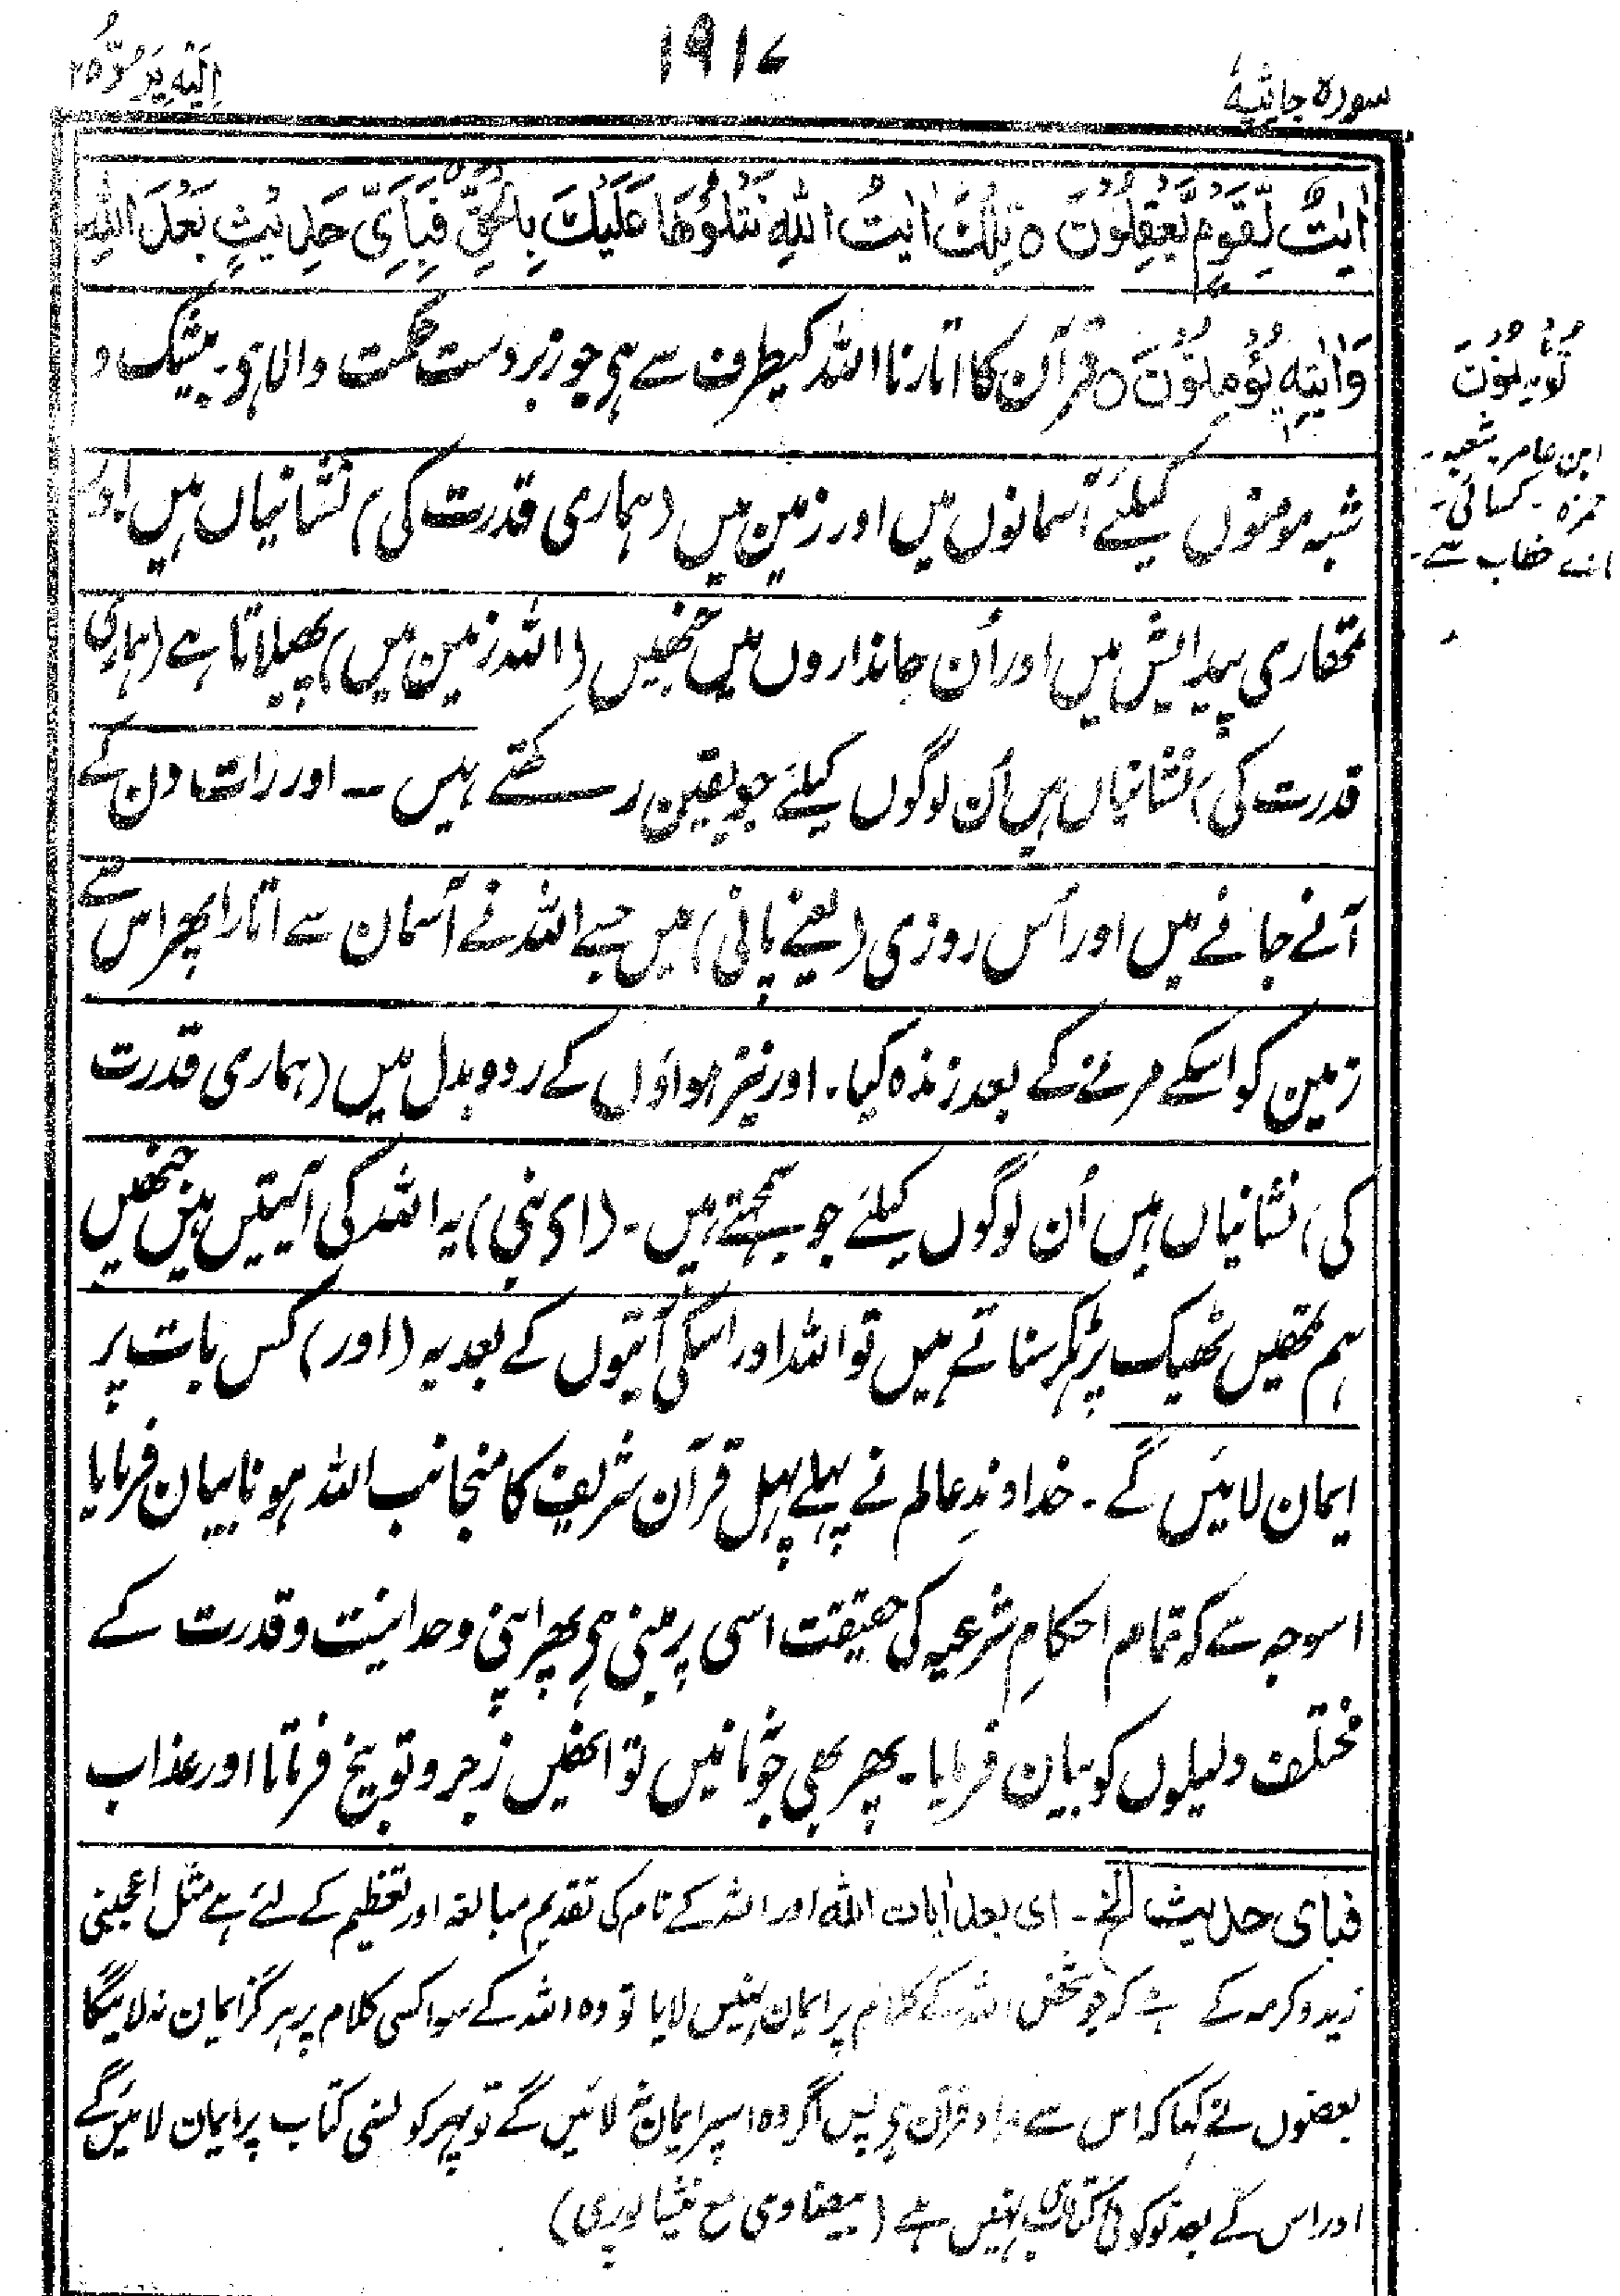 سورہ جاثیۂ
۱۹۱۷
اِلَيْهِ يُرَدُّ ۲۵
اٰيٰتٌ لِّقَوْمٍ يَّعْقِلُوْنَ ۝ تِلْكَ اٰيٰتُ اللّٰهِ نَتْلُوْهَا عَلَيْكَ بِالْحَقِّ فَبِاَيِّ حَدِيْثٍۭ بَعْدَ اللّٰهِ
وَاٰيٰتِهٖ يُؤْمِنُوْنَ ۝ قرآن کا اتارنا اللہ کیطرف سے ہی جو زبردست حکمت والا ہی۔ بیشک و
شبہ مومنوں کیلئے آسمانوں میں اور زمین میں (ہماری قدرت کی) نشانیاں ہیں اور
تمھاری پیدایش میں اور اُن جانداروں میں جنھیں (اللہ زمین میں) پھیلاتا ہے (ہماری
قدرت کی) نشانیاں ہیں اُن لوگوں کیلئے جو یقین رکھتے ہیں ۔ اور رات دن کے
آنے جانے میں اور اُس روزی (یعنے پانی) میں جسے اللہ نے آسمان سے اتارا پھر اس سے
زمین کو اسکے مرنے کے بعد زندہ کیا۔ اور نیز ہواؤں کے ردوبدل میں (ہماری قدرت
کی) نشانیاں ہیں اُن لوگوں کیلئے جو سمجھتے ہیں۔ (ای نبی) یہ اللہ کی آیتیں ہیں جنھیں
ہم تمھیں ٹھیک پڑھکر سناتے ہیں تو اللہ اور اسکی آیتوں کے بعد یہ (اور) کس بات پر
ایمان لائیں گے۔ خداوندِ عالم نے پہلے پہل قرآن شریف کا منجانب اللہ ہونا بیان فرمایا
اسوجہ سے کہ تمام احکامِ شرعیہ کی حقیقت اسی پر مبنی ہی پھر اپنی وحدانیت و قدرت کے
مختلف دلیلوں کو بیان فرمایا۔ پھر بھی جو نمانیں تو انھیں زجر و توبیخ فرماتا اور عذاب
فبای حدیث الخ۔ ای بعد اٰیات اللہ اور اللہ کے نام کی تقدیم مبالغہ اور تعظیم کے لئے ہے مثل اعجبنی
زید وکرمہ کے ہے کہ جو شخص اللہ کے کلام پر ایمان نہیں لایا تو وہ اللہ کے سوا کسی کلام پر ہرگز ایمان نہ لائیگا
بعضوں نے کہا کہ اس سے مراد قرآن ہی پس اگر وہ اسپر ایمان نہ لائیں گے تو پھر کونسی کتاب پر ایمان لائیں گے
اور اس کے بعد تو کوئی کتاب ہی نہیں ہے (بیضاوی مع نیشاپوری)
تُؤْمِنُوْنَ
ابن عامر۔ شعبہ۔
حمزہ۔ کسائی۔
تائے خطاب سے۔